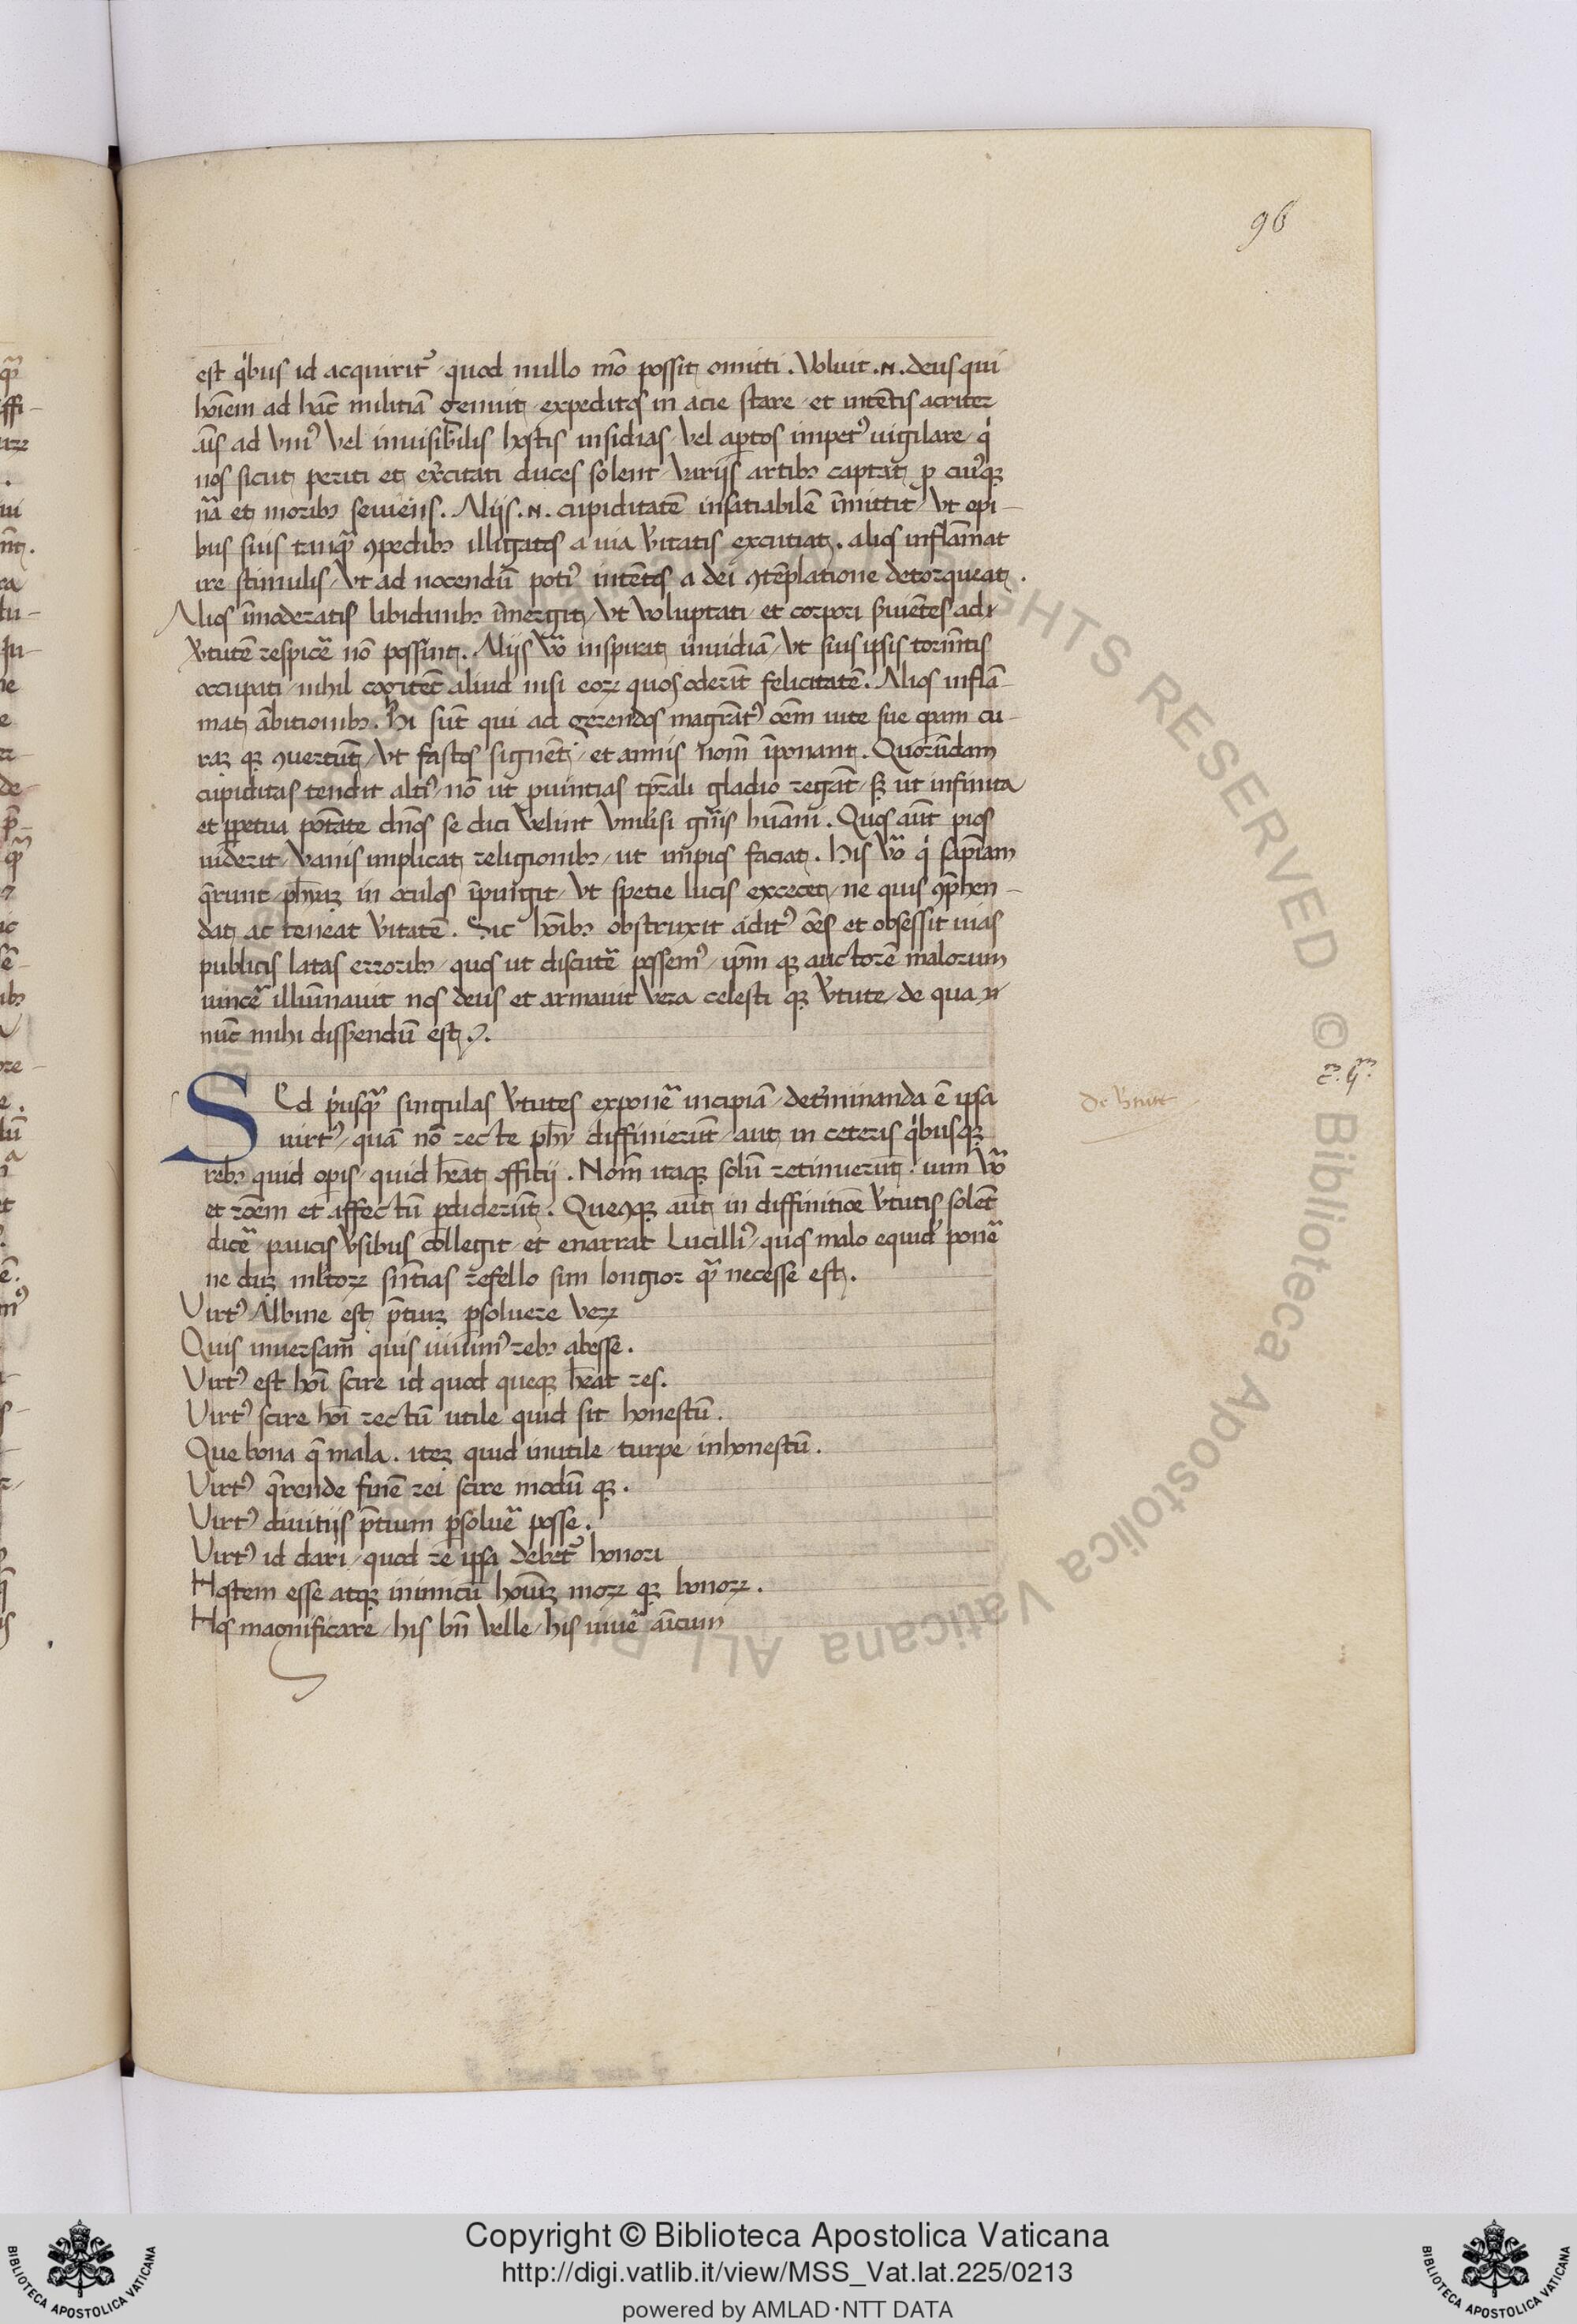 96
est q̾bus id acquirit᷑ / quod nullo mō possit omitti . Voluit .N. deus qui
hoīem ad hāc militiā genuit / expeditos in acie stare / et intētis acriter
aīs ad vniꝰ vel inuisibilis hostis insidias / vel aꝑtos impetꝰ uigilare / q̾
nos sicut periti et ex̾citati duces solent / varijs artibꝫ captāt / ꝓ cuiꝰqꝫ
nā et moribꝫ seuiēns . Alijs .N. cupiditatē insatiabilē īmittit / vt opi-
bus suis tanqꝫ ꝯpedibꝫ illigatos a uia v̾itatis excutiat . alios inflāmat
ire stimulis / vt ad nocendū potiꝰ intētos a dei ꝯtēplatione detorqueat .
Alios īmoderatis libidinibꝫ īmergit / vt voluptati / et corpori s̾uiētes ad
v̾tutē respice᷑ nō possint . Alijs v̾o inspirat inuidiā / vt suis ipsis tormētis
occupati / nihil cogitēt aliud nisi eoꝝ quos oderīt felicitatē . Alios inflā-
mat ābitionibꝫ . Hi sūt qui ad gerendos magr̄atꝰ oēm uite sue oꝑam cu-
raꝫ qꝫ ꝯuertūt / vt fastos signēt / et annis nom̄ īponant . Quorūdam
cupiditas tendit altiꝰ / nō ut ꝓuintias tꝑ̄ali gladio regāt / sꝫ ut infinita
et ꝑpetua potāte dn̄os se dici velint vniu̾si gn̄is hūani . Quos aūt pios
uiderit / vanis implicat religionibꝫ / ut impios faciat . His v̾o q̾ sapīam
q̄runt / ph̄iaꝫ in oculos īpingit / vt spetie lucis excecet / ne quis ꝯp̄hen-
dat ac teneat v̾itatē . Sic hoībꝫ obstruxit aditꝰ oēs et obsessit uias
publicis latas erroribꝫ / quos ut discute᷑ possemꝰ / ip̄m qꝫ auctorē malorum
uince᷑ illuīnauit nos deus et armauit vera celesti qꝫ v̾tute / de qua
nūc mihi disserendū est .
Sed p̾usqꝫ singulas v̾tutes expone᷑ incipiā / det̾minanda ē ipsa
uirtꝰ / quā nō recte ph̄i diffinierūt / aut in ceteris q̾busqꝫ
rebꝫ quid oꝑis / quid h̄eat offitij . Nom̄ itaqꝫ solū retinuerūt . uim v̾o
et rōem et affectū ꝑdiderūt . Quecūqꝫ aūt in diffinitiōe v̾tutis solēt
dice᷑ / paucis v̾sibus collegit / et enarrat Lucilliꝰ / quos malo equid̾ pone᷑
ne duꝫ ml̾toꝝ sn̄tias refello sim longior qꝫ necesse est .
Virtꝰ Albine est p̄tiuꝫ ꝑsoluere veꝝ
Quis inuersam̄ quis uiuimꝰ rebꝫ abesse .
Virtꝰ est hoī scire id quod queqꝫ h̄eat res .
Virtꝰ scire hoī rectū utile quid sit honestū .
Que bona q̄ mala . iteꝫ quid inutile / turpe / inhonestū .
Virtꝰ q̄rende finē rei scire modū qꝫ .
Virtꝰ diuitijs p̄tium ꝑsolue᷑ posse .
Virtꝰ id dari / quod re ipsa debet᷑ honori
Hostem esse atqꝫ inimicū hoīuꝫ moꝝ qꝫ bonoꝝ .
Hos magnificare / his bn̄ velle / his uiue᷑ aīcum
De v̾tute
© Biblioteca Apostolica Vaticana ALL RIGHTS RESERVED
Copyright © Biblioteca Apostolica Vaticana
http://digi.vatlib.it/view/MSS_Vat.lat.225/0213
powered by AMLAD·NTT DATA
BIBLIOTECA APOSTOLICA VATICANA
BIBLIOTECA APOSTOLICA VATICANA